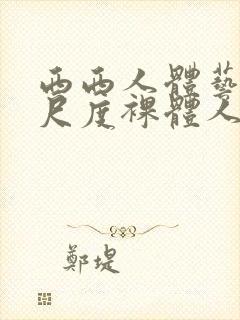 西西人體藝
尺度裸體人
鄭堤